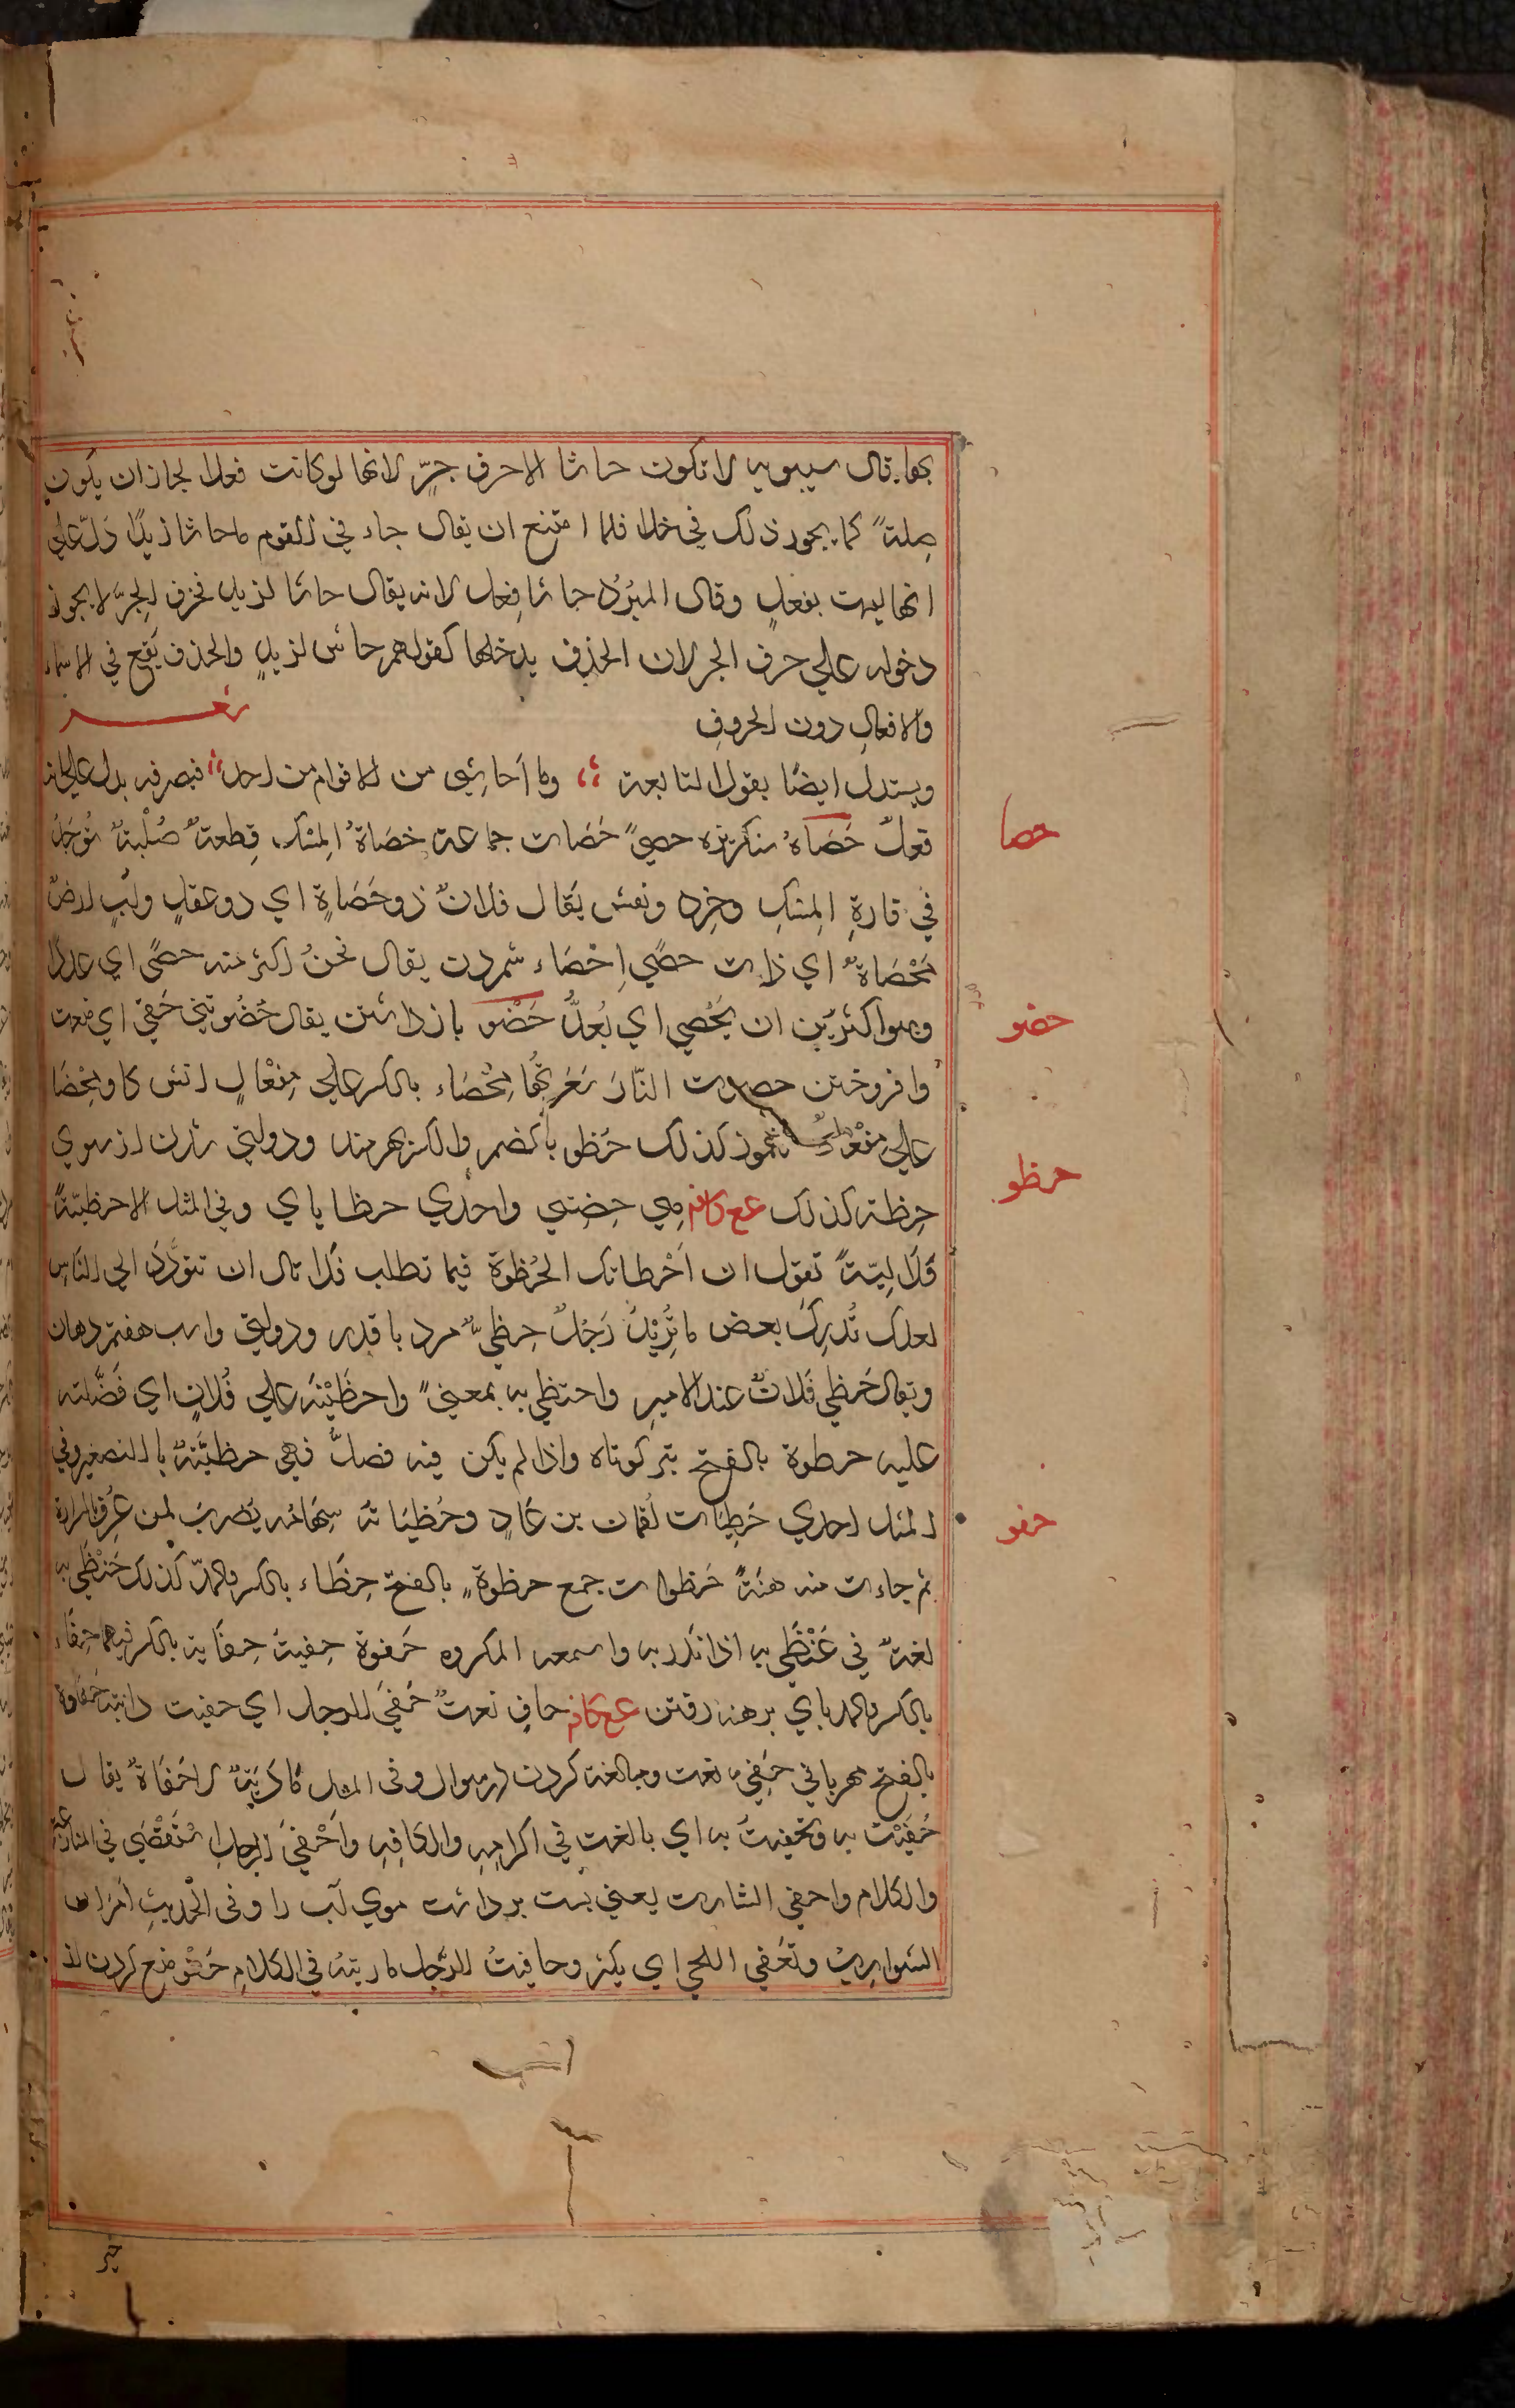 بها. قال سيبويه لا تكون حاشا الا حرف جرٍّ لانها لو كانت فعلا لجاز ان يكون
صِلةً كما يجوز ذلك في خلا فلما امتنع ان يقال جاء ني القوم ما حاشا زيدًا دَلّ علي
انها ليست بفعلٍ وقال المبرّد حاشا فِعل لانه يقال حاشا لزيدٍ فحرف الجرّ لا يجوز
دخوله علي حرف الجر لان الحذف يدخلها كقولهم حاش لزيدٍ والحذف يَقع في الاسماء
والافعالِ دون الحروفِ
شعر
ويستدل ايضًا بقول النابغة وما اُحاشِي من الاقوام من احدٍ فتصرفه يدل علي انه
حصا
فعلٌ حَصَاةٌ سنكريزه حصيً حَصَات جماعة حَصَاةُ المِسْك قِطعةٌ صُلْبةٌ تُوجَدُ
في قارةِ المِسكِ وخِرد ونفس يُقال فلانٌ ذو حَصَاةٍ اي ذو عقلٍ ولُبٍ ارضٌ
مَحْصَاةٌ اي ذات حصًي اِحْصَاء شمردن يقال نحنُ اكثر منه حصًي اي عددًا
حضو
وهو اكثر مِن ان يُحْصي اي يُعدُّ حَضْو باز داشتن يقال حَضَوتني حَقي اي منعت
وافروختن حضوت النّارَ سَعَرتُها مِحْضَاء بالكسر علي مِفْعَالٍ اتش كاو مِحْضَا
حظو
علي مفعلٌ مَهموز كذلك حُظو بالضم والكسر بهره مند ودولتي شدن از شوي
حِظة كذلك مع كافه مِي حِضتي واحدي حظا ياي وفي المثل الا حظيّةً
فَلا ليّةً تقول ان اَخْطاتك الحُظوة فيما تطلب فلا تال ان تتودّد الي النّاسِ
لعلك تُدرِك بعض ما تُرِيْدُ رَجُلٌ حِظيٌّ مرد با قدر ودولتي واسب هفتم رهان
ويقال حَظي فَلانٌ عند الاميرِ واحتظي به بمعنيً واحظَيْتُه علي فُلانٍ اي فَضَّلته
عليه حظوة بالفتح تير كوتاه واذا لم يكن فيه فصلٌ فهي حظيَّةٌ بالتصغير وفي
حفو
المثل احدي حَظِيّات لُقمان بن عَادٍ وحُظيَاتهُ سِهَامُه يُضربُ لمن عُرِف بالشرارة
ثم جاءت منه هنَةٌ حَظوات جمع حظوة بالفتح حِظَاء بالكسر والمدّ كذلك حَنْظَي به
لغةٌ في عَنْظَي به اذا ندّد به واسمعه المكروه حَفوة حِفية حِفَاية بالكسر فيهما حِفَاء
بالكسر والمد پاي برهنه رفتن مع كافه حافٍ نعتٌ حَفيَ الرجل اي حفيت دابته حَفَاوة
بالفتح مهرباني حَفِي نعت ومبالغة كردن در سوال وفي المثل مَاْرُبَةٌ لا حَفَاوَةٌ يقال
حُفَيْت به وتحفيتُ به اي بالغت في اكرامِهِ والطافِهِ واَحْفيَ الرجل استَقْصَي في المنازعة
والكلام واحفي الشارب يعني پست برداشت موي لب را وفي الحديثِ اَمَرَ ان
الشوارِبُ وتُعْفي اللحي اي يكثر وحافيتُ الرّجل ماريته في الكلام حَفْو منع كردن از
چيز